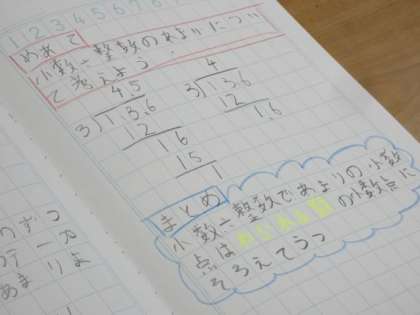 1 2 3 4 5 6 7 8
めあて
小数÷整数のあまりについ
て考えよう。
4.5
3)13.6
12
16
15
1
4
3)13.6
12
1.6
まとめ
小数÷整数であまりの小数
点は の小数点に
そろえてうつ
あまり